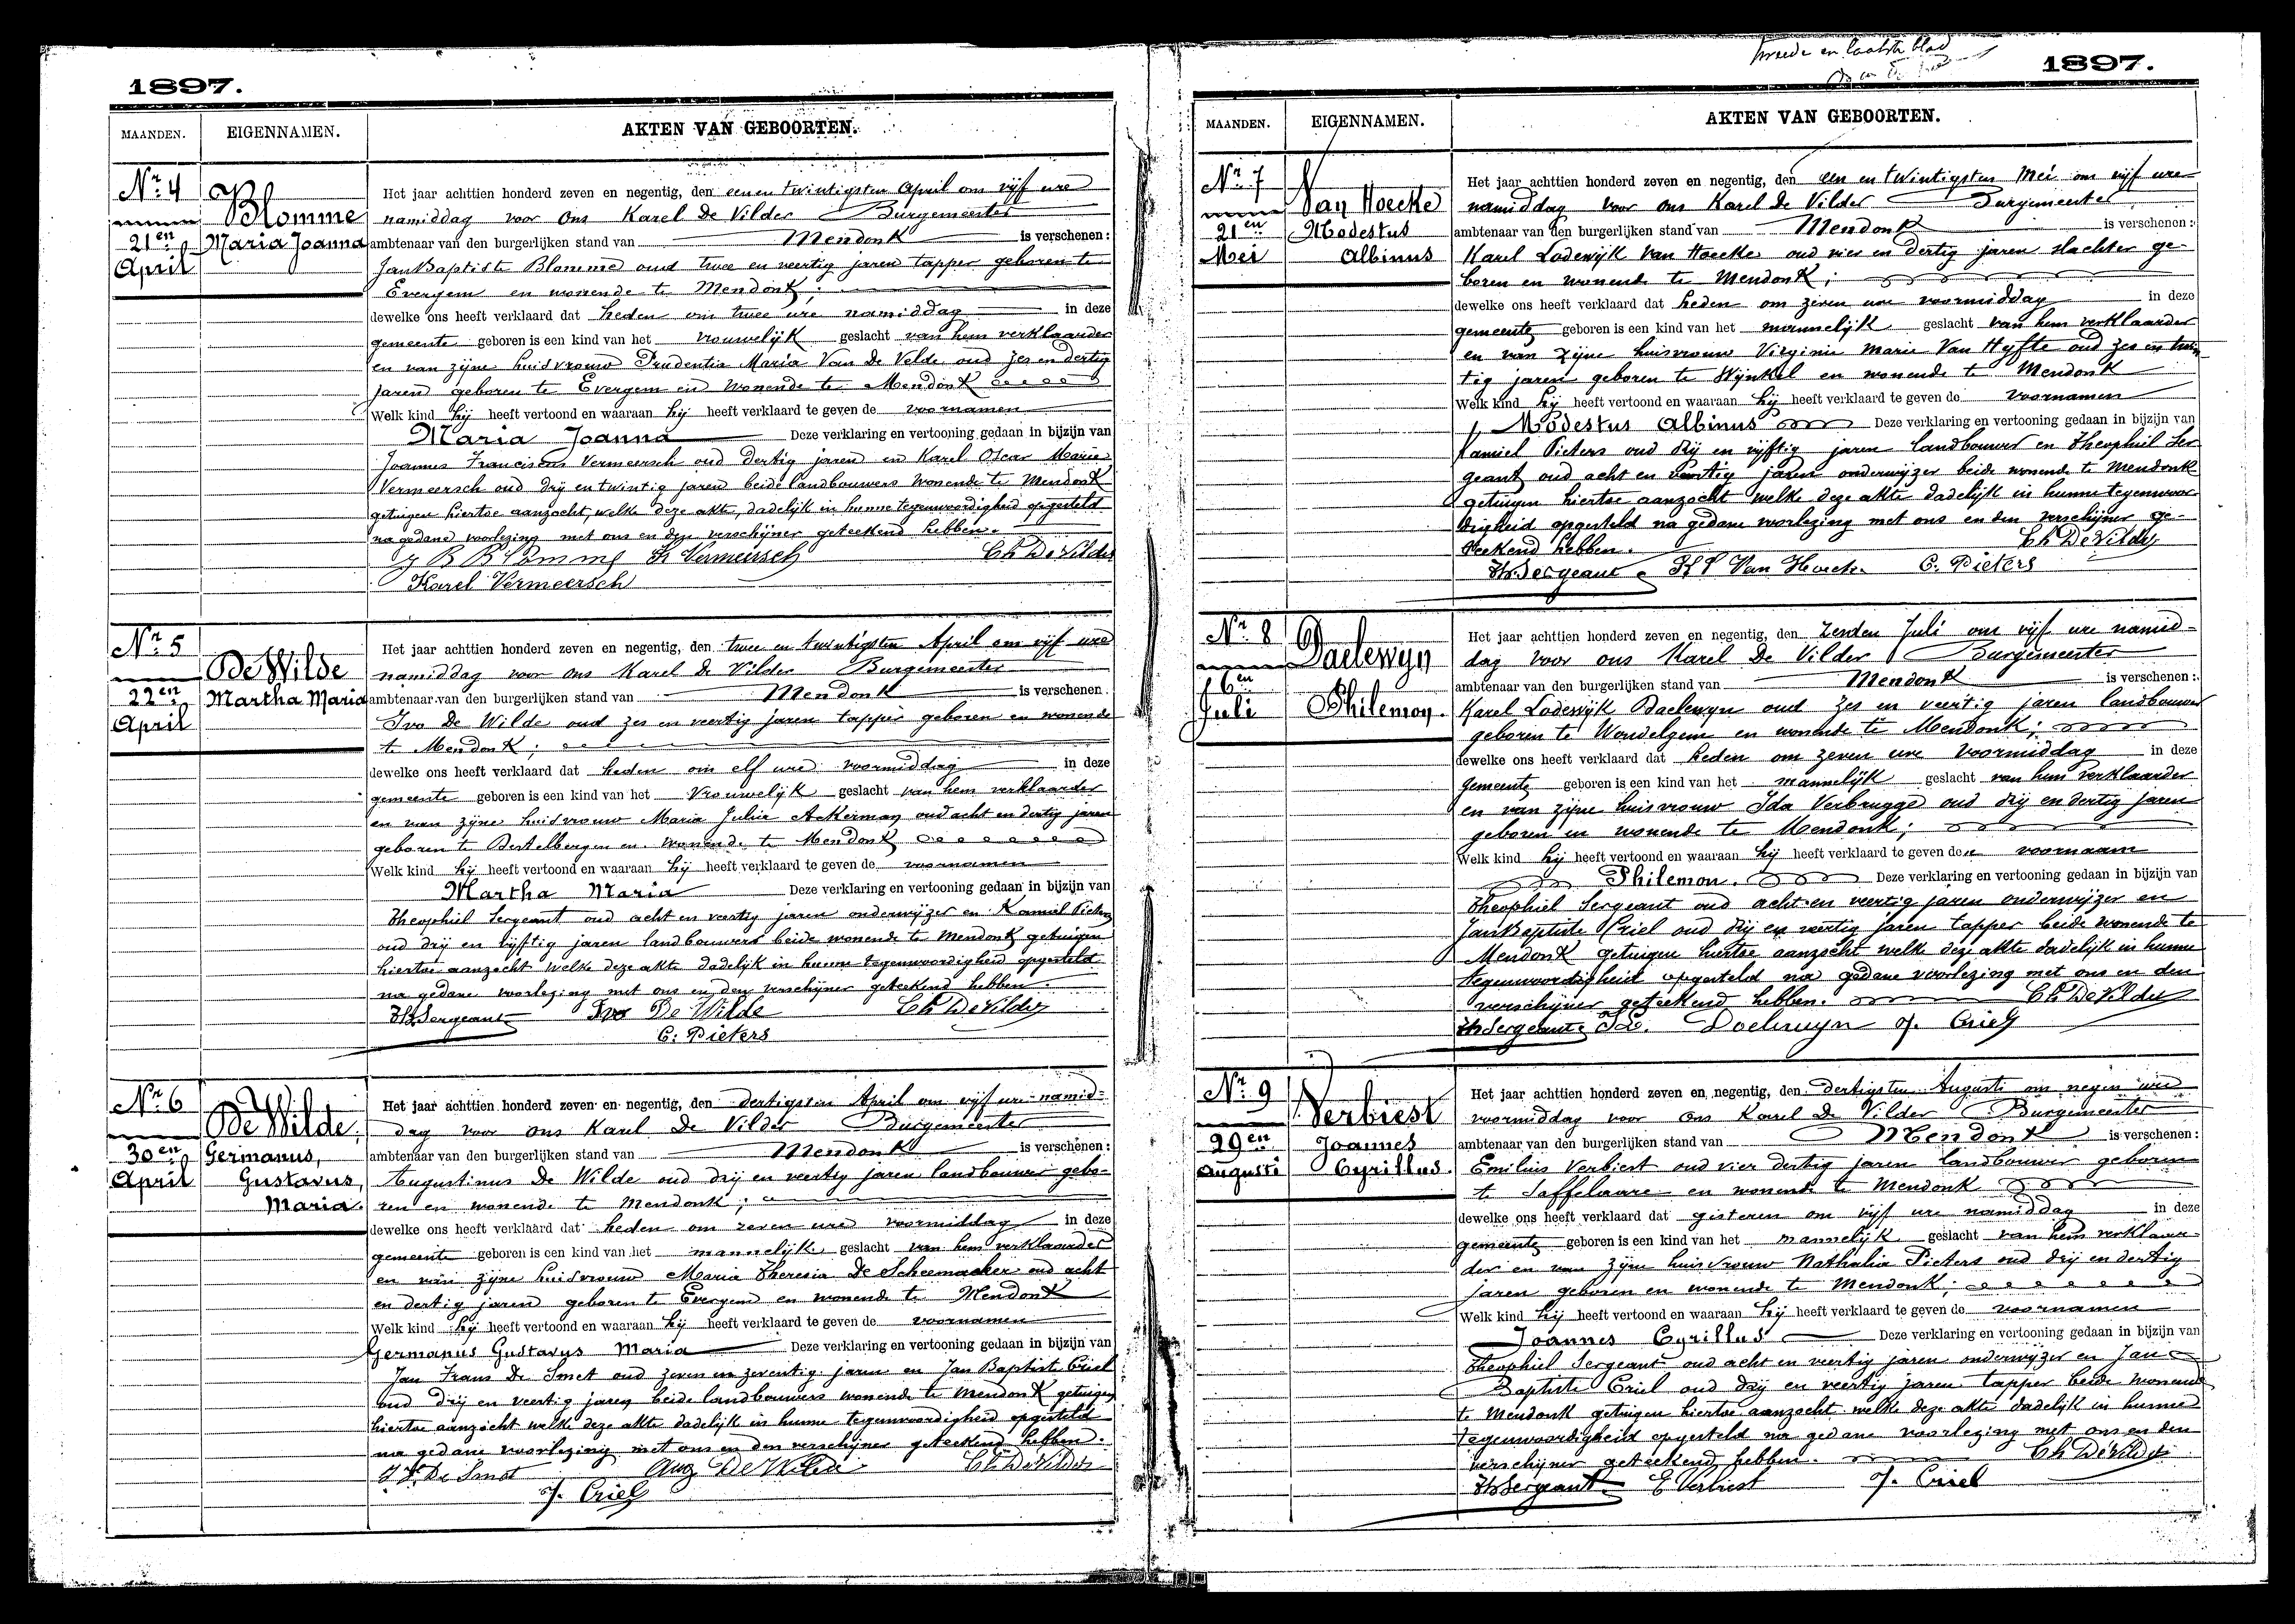 1897.
MAANDEN. EIGENNAMEN. AKTEN VAN GEBOORTEN.
Nr. 4
21en
April
Blomme
Maria Joanna
Het jaar achttien honderd zeven en negentig, den eenen twintigsten April om vijf ure
namiddag voor Ons Karel De Vilder Burgemeester
ambtenaar van den burgerlijken stand van Mendonk is verschenen:
Jan Baptiste Blomme oud twee en veertig jaren tapper geboren te
Evergem en wonende te Mendonk;
dewelke ons heeft verklaard dat heden om twee ure namiddag in deze
gemeente geboren is een kind van het vrouwelijk geslacht van hem verklaarder
en van zijne huisvrouw Prudentia Maria Van de Velde oud zes en dertig
jaren geboren te Evergem en wonende te Mendonk
Welk kind hij heeft vertoond en waaraan hij heeft verklaard te geven de voornamen
Maria Joanna Deze verklaring en vertooning gedaan in bijzijn van
Joannes Franciscus Vermeersch oud dertig jaren en Karel Oscar Marie
Vermeersch oud drij en twintig jaren beide landbouwers wonende te Mendonk
getuigen hiertoe aanzocht, welke deze akte, dadelijk in hunne tegenwoordigheid opgesteld
na gedane voorlezing met ons en den verschijner geteekend hebben.
J B Blomme Fr Vermeirsch Ch De Vilder
Karel Vermeersch
Nr. 5
22en
April
De Wilde
Martha Maria
Het jaar achttien honderd zeven en negentig, den twee en twintigsten April om vijf ure
namiddag voor ons Karel De Vilder Burgemeester
ambtenaar van den burgerlijken stand van Mendonk is verschenen.
Ivo De Wilde oud zes en veertig jaren tapper geboren en wonende
te Mendonk;
dewelke ons heeft verklaard dat heden om elf ure voormiddag in deze
gemeente geboren is een kind van het vrouwelijk geslacht van hem verklaarder
en van zijne huisvrouw Maria Julia Ackerman oud acht en dertig jaren
geboren te Destelbergen en wonende te Mendonk
Welk kind hij heeft vertoond en waaraan hij heeft verklaard te geven de voornamen
Martha Maria Deze verklaring en vertooning gedaan in bijzijn van
Theophiel Sergeant oud acht en veertig jaren onderwijzer en Kamiel Pieters
oud drij en vijftig jaren landbouwers beide wonende te Mendonk getuigen
hiertoe aanzocht welke deze akte dadelijk in hunne tegenwoordigheid opgesteld
na gedane voorlezing met ons en den verschijner geteekend hebben.
Th Sergeant Ivo De Wilde Ch De Vilder
C. Pieters
Nr. 6
30en
April
De Wilde,
Germanus,
Gustavus,
Maria.
Het jaar achttien honderd zeven en negentig, den dertigsten April om vijf ure namid-
dag voor ons Karel De Vilder Burgemeester
ambtenaar van den burgerlijken stand van Mendonk is verschenen:
Augustinus De Wilde oud drij en veertig jaren landbouwer gebo-
ren en wonende te Mendonk;
dewelke ons heeft verklaard dat heden om zeven ure voormiddag in deze
gemeente geboren is een kind van het mannelijk geslacht van hem verklaarder
en van zijne huisvrouw Maria Theresia De Scheemaeker oud acht
en dertig jaren geboren te Evergem en wonende te Mendonk
Welk kind hij heeft vertoond en waaraan hij heeft verklaard te geven de voornamen
Germanus Gustavus Maria Deze verklaring en vertooning gedaan in bijzijn van
Jan Frans De Smet oud zeven en zeventig jaren en Jan Baptiste Criel
oud drij en veertig jaren, beide landbouwers wonende te Mendonk getuigen
hiertoe aanzocht welke deze akte dadelijk in hunne tegenwoordigheid opgesteld
na gedane voorlezing met ons en den verschijner geteekend hebben.
J F De Smet Aug De Wilde Ch De Vilder
J. Criel
tweede en laatste blad
1897.
MAANDEN. EIGENNAMEN. AKTEN VAN GEBOORTEN.
Nr. 7
21en
Mei
Van Hoecke
Modestus
Albinus
Het jaar achttien honderd zeven en negentig, den een en twintigsten Mei om vijf ure
namiddag voor ons Karel De Vilder Burgemeester
ambtenaar van den burgerlijken stand van Mendonk is verschenen:
Karel Lodewijk Van Hoecke oud vier en dertig jaren slachter ge-
boren en wonende te Mendonk;
dewelke ons heeft verklaard dat heden om zeven ure voormiddag in deze
gemeente geboren is een kind van het mannelijk geslacht van hem verklaarder
en van zijne huisvrouw Virginie Marie Van Hyfte oud zes en twin
tig jaren geboren te Wynkel en wonende te Mendonk
Welk kind hij heeft vertoond en waaraan hij heeft verklaard te geven de voornamen
Modestus Albinus Deze verklaring en vertooning gedaan in bijzijn van
Kamiel Pieters oud drij en vijftig jaren landbouwer en Theophiel Ser
geant oud acht en veertig jaren onderwijzer beide wonende te Mendonk
getuigen hiertoe aanzocht welke deze akte dadelijk in hunne tegenwoor
digheid opgesteld na gedane voorlezing met ons en den verschijner ge-
teekend hebben. Ch De Vilder
Th. Sergeant K L Van Hoecke C. Pieters
Nr. 8
6en
Juli
Daelewyn
Philemon.
Het jaar achttien honderd zeven en negentig, den zesden Juli om vijf ure namid-
dag voor ons Karel De Vilder Burgemeester
ambtenaar van den burgerlijken stand van Mendonk is verschenen:
Karel Lodewijk Daelewyn oud zes en veertig jaren landbouwer
geboren te Wondelgem en wonende te Mendonk;
dewelke ons heeft verklaard dat heden om zeven ure voormiddag in deze
gemeente geboren is een kind van het mannelijk geslacht van hem verklaarder
en van zijne huisvrouw Ida Verbrugge oud drij en dertig jaren
geboren en wonende te Mendonk;
Welk kind hij heeft vertoond en waaraan hij heeft verklaard te geven den voornaam
Philemon. Deze verklaring en vertooning gedaan in bijzijn van
Theophiel Sergeant oud acht en veertig jaren onderwijzer en
Jan Baptiste Criel oud drij en veertig jaren tapper beide wonende te
Mendonk getuigen hiertoe aanzocht welk deze akte dadelijk in hunne
tegenwoordigheid opgesteld na gedane voorlezing met ons en den
verschijner geteekend hebben. Ch De Vilder
Th Sergeant Daelewyn J. Criel
Nr. 9
29en
Augusti
Verbiest
Joannes
Cyrillus.
Het jaar achttien honderd zeven en negentig, den dertigsten Augusti om negen ure
voormiddag voor Ons Karel De Vilder Burgemeester
ambtenaar van den burgerlijken stand van Mendonk is verschenen:
Emilius Verbiest oud vier dertig jaren landbouwer geboren
te Saffelaare en wonende te Mendonk
dewelke ons heeft verklaard dat gisteren om vijf ure namiddag in deze
gemeente geboren is een kind van het mannelijk geslacht van hem verklaar-
der en van zijne huisvrouw Nathalia Pieters oud drij en dertig
jaren geboren en wonende te Mendonk;
Welk kind hij heeft vertoond en waaraan hij heeft verklaard te geven de voornamen
Joannes Cyrillus Deze verklaring en vertooning gedaan in bijzijn van
Theophiel Sergeant oud acht en veertig jaren onderwijzer en Jan
Baptiste Criel oud drij en veertig jaren tapper beide wonende
te Mendonk getuigen hiertoe aanzocht welke deze akte dadelijk in hunne
tegenwoordigheid opgesteld na gedane voorlezing met ons en den
verschijner geteekend hebben. Ch De Vilder
Th Sergeant E Verbiest J. Criel